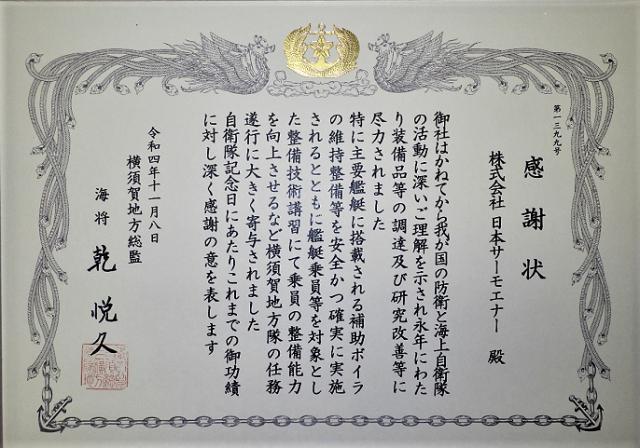 第一三九九号
感謝状
株式会社 日本サーモエナー 殿
御社はかねてから我が国の防衛と海上自衛隊
の活動に深いご理解を示され永年にわた
り装備品等の調達及び研究改善等に
尽力されました
特に主要艦艇に搭載される補助ボイラ
の維持整備等を安全かつ確実に実施
されるとともに艦艇乗員等を対象とし
た整備技術講習にて乗員の整備能力
を向上させるなど横須賀地方隊の任務
遂行に大きく寄与されました
自衛隊記念日にあたりこれまでの御功績
に対し深く感謝の意を表します
令和四年十一月八日
横須賀地方総監
海将 乾 悦久